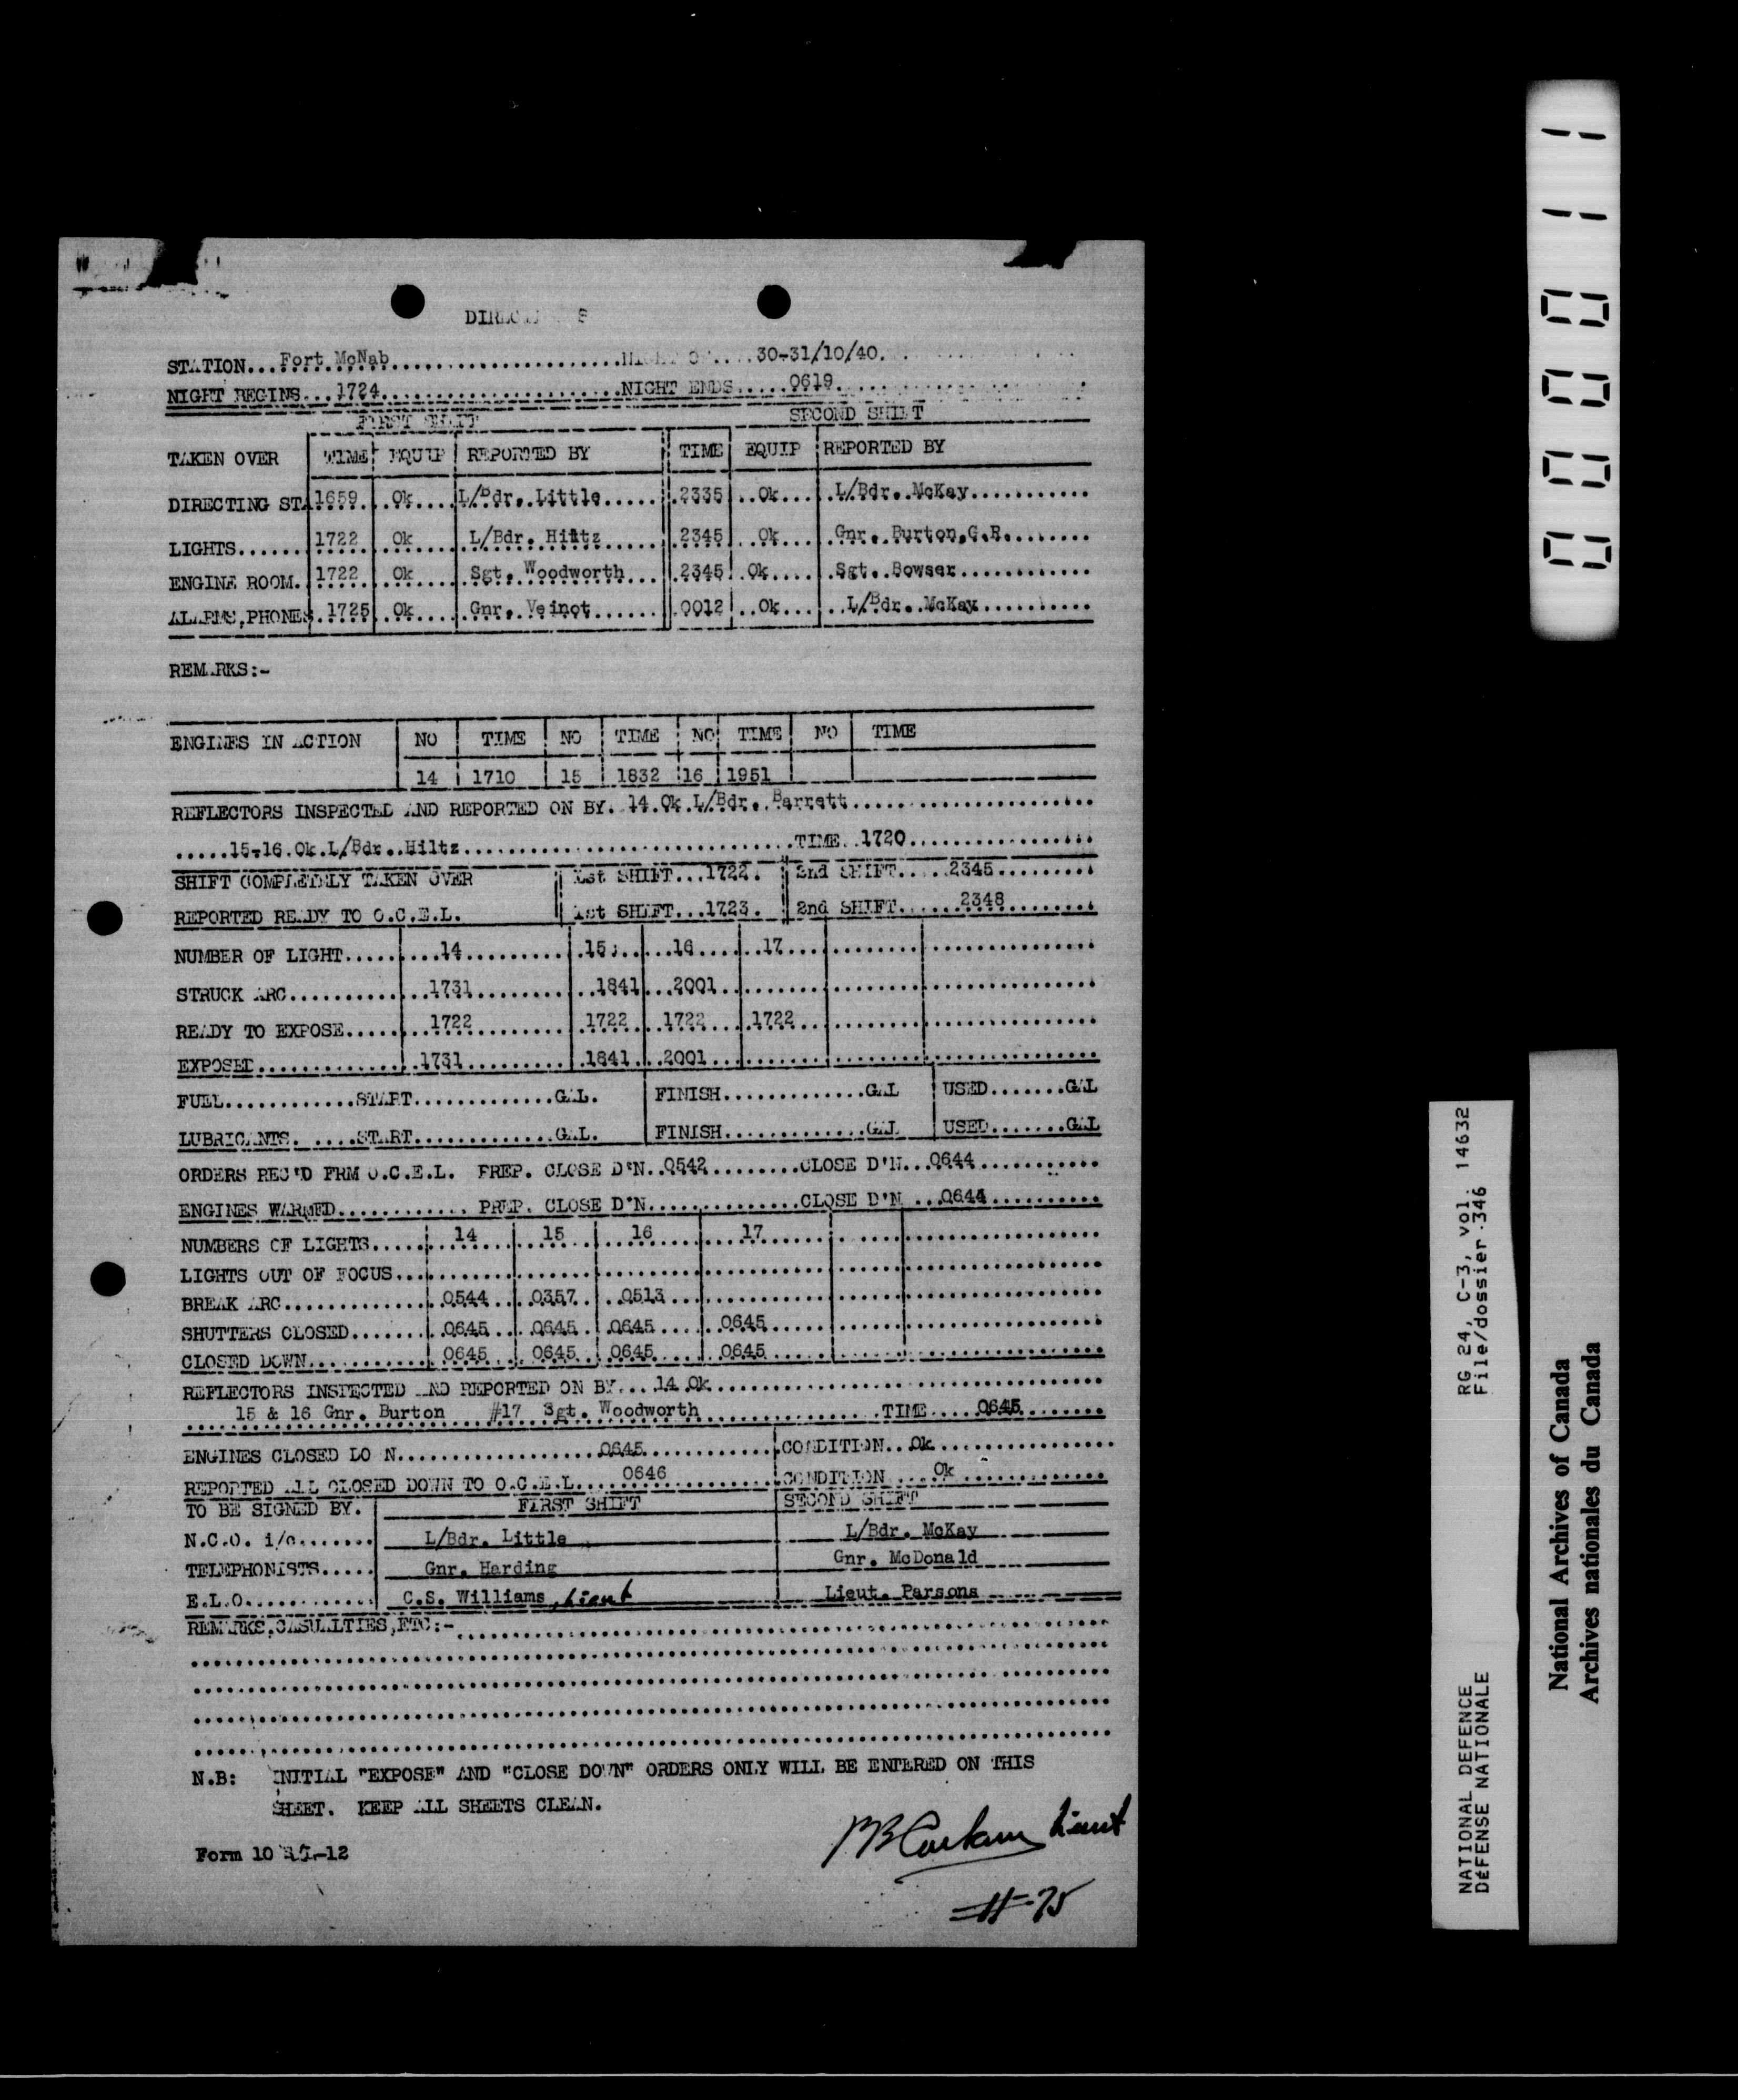 STATION...Fort McNab.......................... 30-31/10/40.
NIGHT BEGINS...1724......................NIGHT ENDS.....0619.........
FIRST SHIFT SECOND SHIFT
TAKEN OVER TIME EQUIP REPORTED BY TIME EQUIP REPORTED BY
DIRECTING STA 1659 Ok L/Bdr. Little 2335 Ok L/Bdr. McKay
LIGHTS....... 1722 Ok L/Bdr. Hiltz 2345 Ok Gnr. Burton,G.R.
ENGINE ROOM. 1722 Ok Sgt. Woodworth 2345 Ok Sgt. Bowser
ALARMS,PHONES 1725 Ok Gnr. Veinot 0012 Ok L/Bdr. McKay
REMARKS:-
ENGINES IN ACTION NO TIME NO TIME NO TIME NO TIME
14 1710 15 1832 16 1951
REFLECTORS INSPECTED AND REPORTED ON BY. 14.Ok.L/Bdr. Barrett
.....15-16.Ok.L/Bdr..Hiltz..............................TIME..1720
SHIFT COMPLETELY TAKEN OVER 1st SHIFT...1722. 2nd SHIFT.....2345
REPORTED READY TO O.C.E.L. 1st SHIFT...1723. 2nd SHIFT......2348
NUMBER OF LIGHT 14 15 16 17
STRUCK ARC 1731 1841 2001
READY TO EXPOSE 1722 1722 1722 1722
EXPOSED 1731 1841 2001
FUEL............START.............GAL. FINISH.............GAL USED.......GAL
LUBRICANTS. ....START.............GAL. FINISH.............GAL USED.......GAL
ORDERS REC'D FRM O.C.E.L. PREP. CLOSE D'N..0542.........CLOSE D'N...0644
ENGINES WARMED............ PREP. CLOSE D'N...............CLOSE D'N ...0644
NUMBERS OF LIGHTS 14 15 16 17
LIGHTS OUT OF FOCUS
BREAK ARC 0544 0357 0513
SHUTTERS CLOSED 0645 0645 0645 0645
CLOSED DOWN 0645 0645 0645 0645
REFLECTORS INSPECTED AND REPORTED ON BY... 14 Ok
15 & 16 Gnr. Burton #17 Sgt. Woodworth TIME....0645
ENGINES CLOSED DO N 0645 CONDITION..Ok
REPORTED ALL CLOSED DOWN TO O.C.E.L.... 0646 CONDITION ....Ok
TO BE SIGNED BY. FIRST SHIFT SECOND SHIFT
N.C.O. i/c....... L/Bdr. Little L/Bdr. McKay
TELEPHONISTS..... Gnr. Harding Gnr. McDonald
E.L.O............ C.S. Williams, Lieut Lieut. Parsons
REMARKS,CASUALTIES,ETC:-
N.B: INITIAL "EXPOSE" AND "CLOSE DOWN" ORDERS ONLY WILL BE ENTERED ON THIS
SHEET. KEEP ALL SHEETS CLEAN.
Lieut
Form 10 -12
#-75
00001 1
RG 24, C-3, vol. 14632
File/dossier 346
NATIONAL DEFENCE
DÉFENSE NATIONALE
National Archives of Canada
Archives nationales du Canada